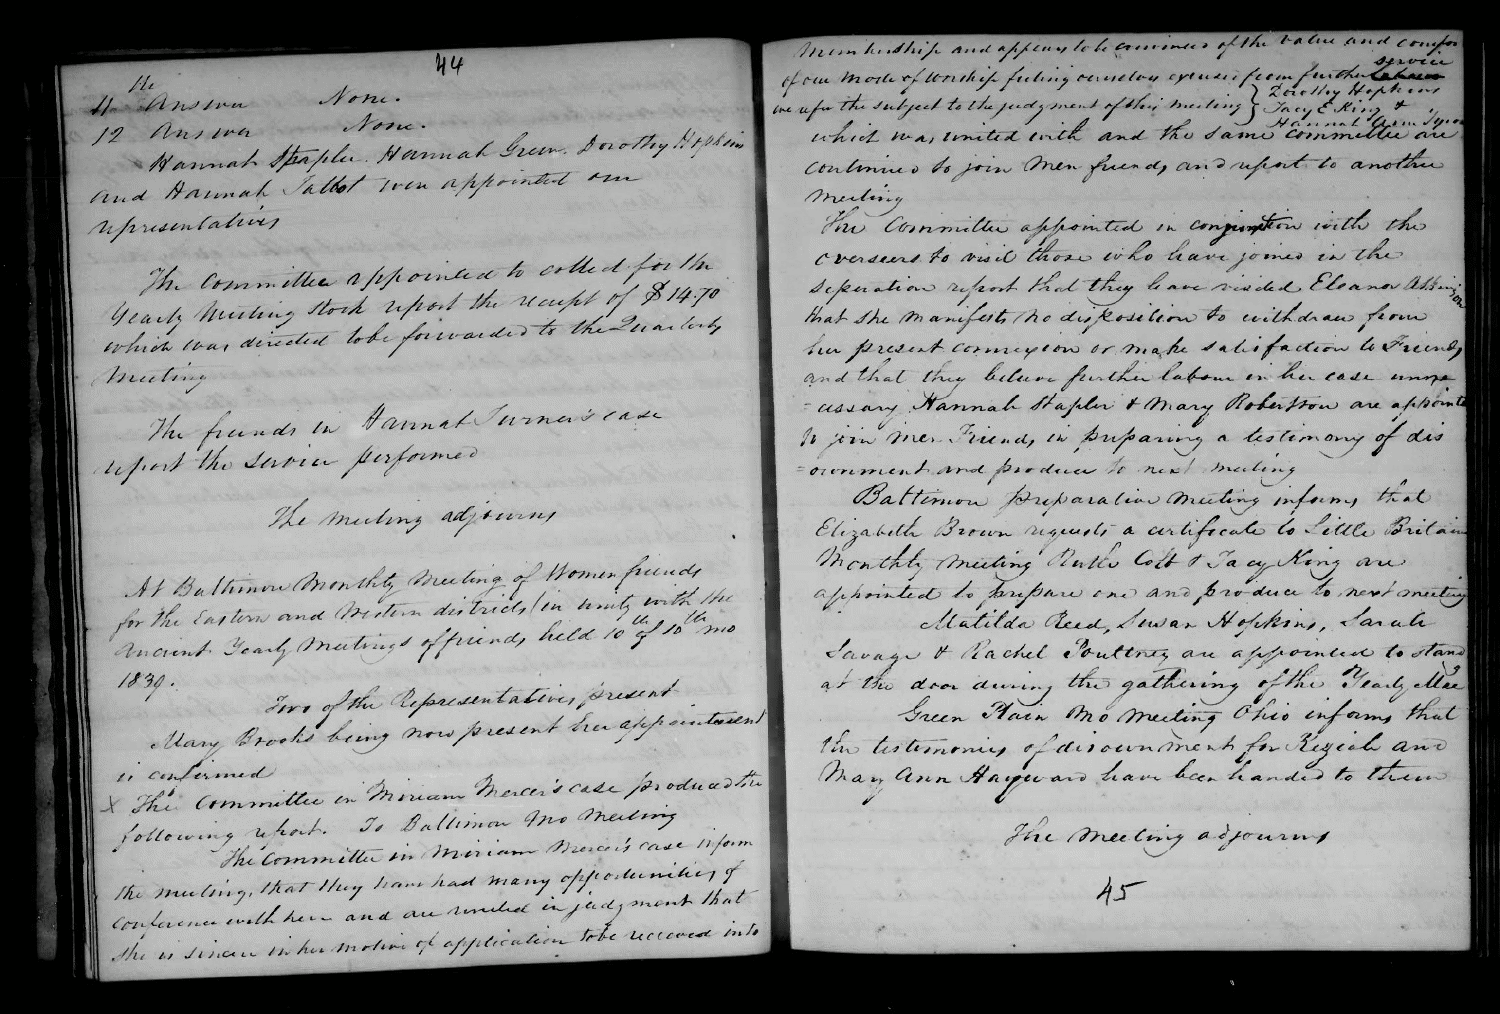 44
11th Answer None.
12 Answer None.
Hannah Stapler. Hannah Green. Dorothy Hopkins
and Hannah Talbot were appointed our
representatives
The Committee appointed to collect for the
Yearly Meeting stock report the receipt of $14.70
which was directed to be forwarded to the Quarterly
Meeting
The friends in Hannah Turner's case
report the service performed
The meeting adjourns
At Baltimore Monthly Meeting of Women friends
for the Eastern and Western districts (in unity with the
ancient Yearly Meetings of friends held 10th of 10th mo
1839.
Two of the Representatives present
Mary Brooks being now present her appointment
is confirmed
X The Committee in Miriam Mercer's case produced the
following report. To Baltimore Mo Meeting
The Committee in Miriam Mercer's case inform
the meeting, that they have had many opportunities of
conference with her and are united in judgment that
she is sincere in her motive of application to be received into
Membership and appears to be convinced of the value and comfor
of our mode of worship feeling ourselves excused from further service
we refer the subject to the judgment of this meeting } Dorothy Hopkins
Tacy E King &
Hannah Ann Tyson
which was united with and the same committee are
continued to join Men friends and report to another
meeting
The Committee appointed in conjunction with the
overseers to visit those who have joined in the
seperation report that they have visited Eleanor Atkinson
that she manifests no disposition to withdraw from
her present connexion or make satisfaction to Friends
and that they believe further labour in her case unne
=cessary Hannah Stapler & Mary Robertson are appointed
to join Men Friends in preparing a testimony of dis
=ownment and produce to next meeting
Baltimore preparative meeting informs that
Elizabeth Brown requests a certificate to Little Britain
Monthly meeting Ruth Colt & Tacy King are
appointed to prepare one and produce to next meeting
Matilda Reed, Susan Hopkins, Sarah
Savage & Rachel Poultney are appointed to stand
at the door during the gathering of the Yearly Mee
Green Plain Mo Meeting Ohio informs that
the testimonies of disownment for Keziah and
Mary Ann Hayward have been handed to them
The meeting adjourns
45